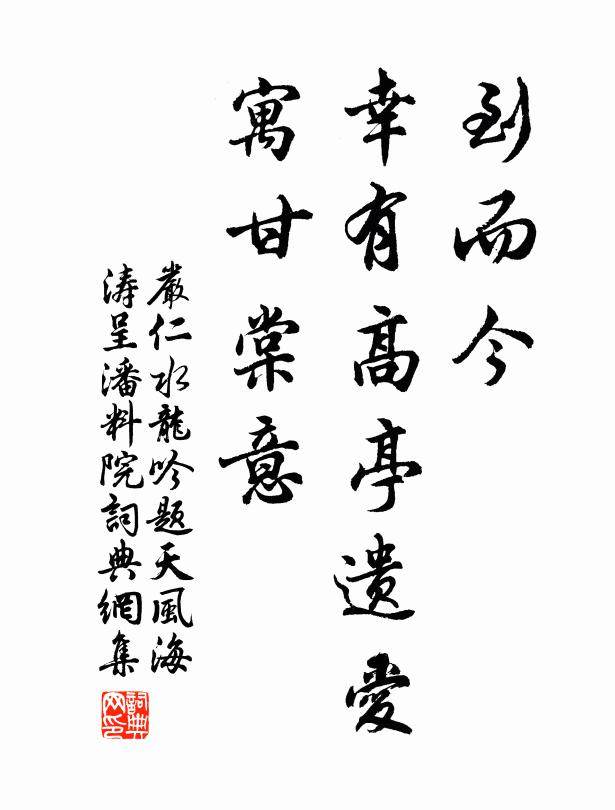 到而今
幸有高亭遗爱
寓甘棠意
嚴仁水龍吟题天風海
涛呈潘料院詞典網集
詞典
网印